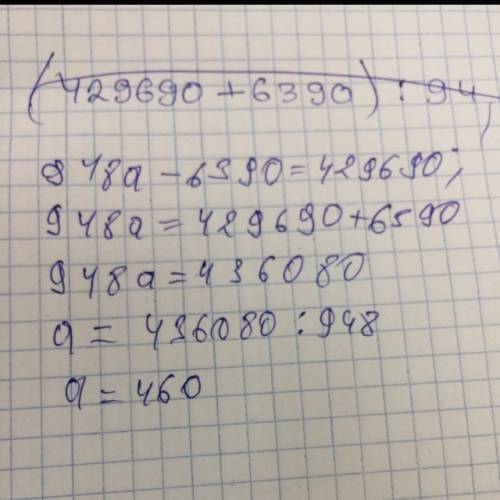 (429690+6390) : 94
948a-6390=429690;
948a=429690+6590
948a=436080
a = 436080:948
a=460